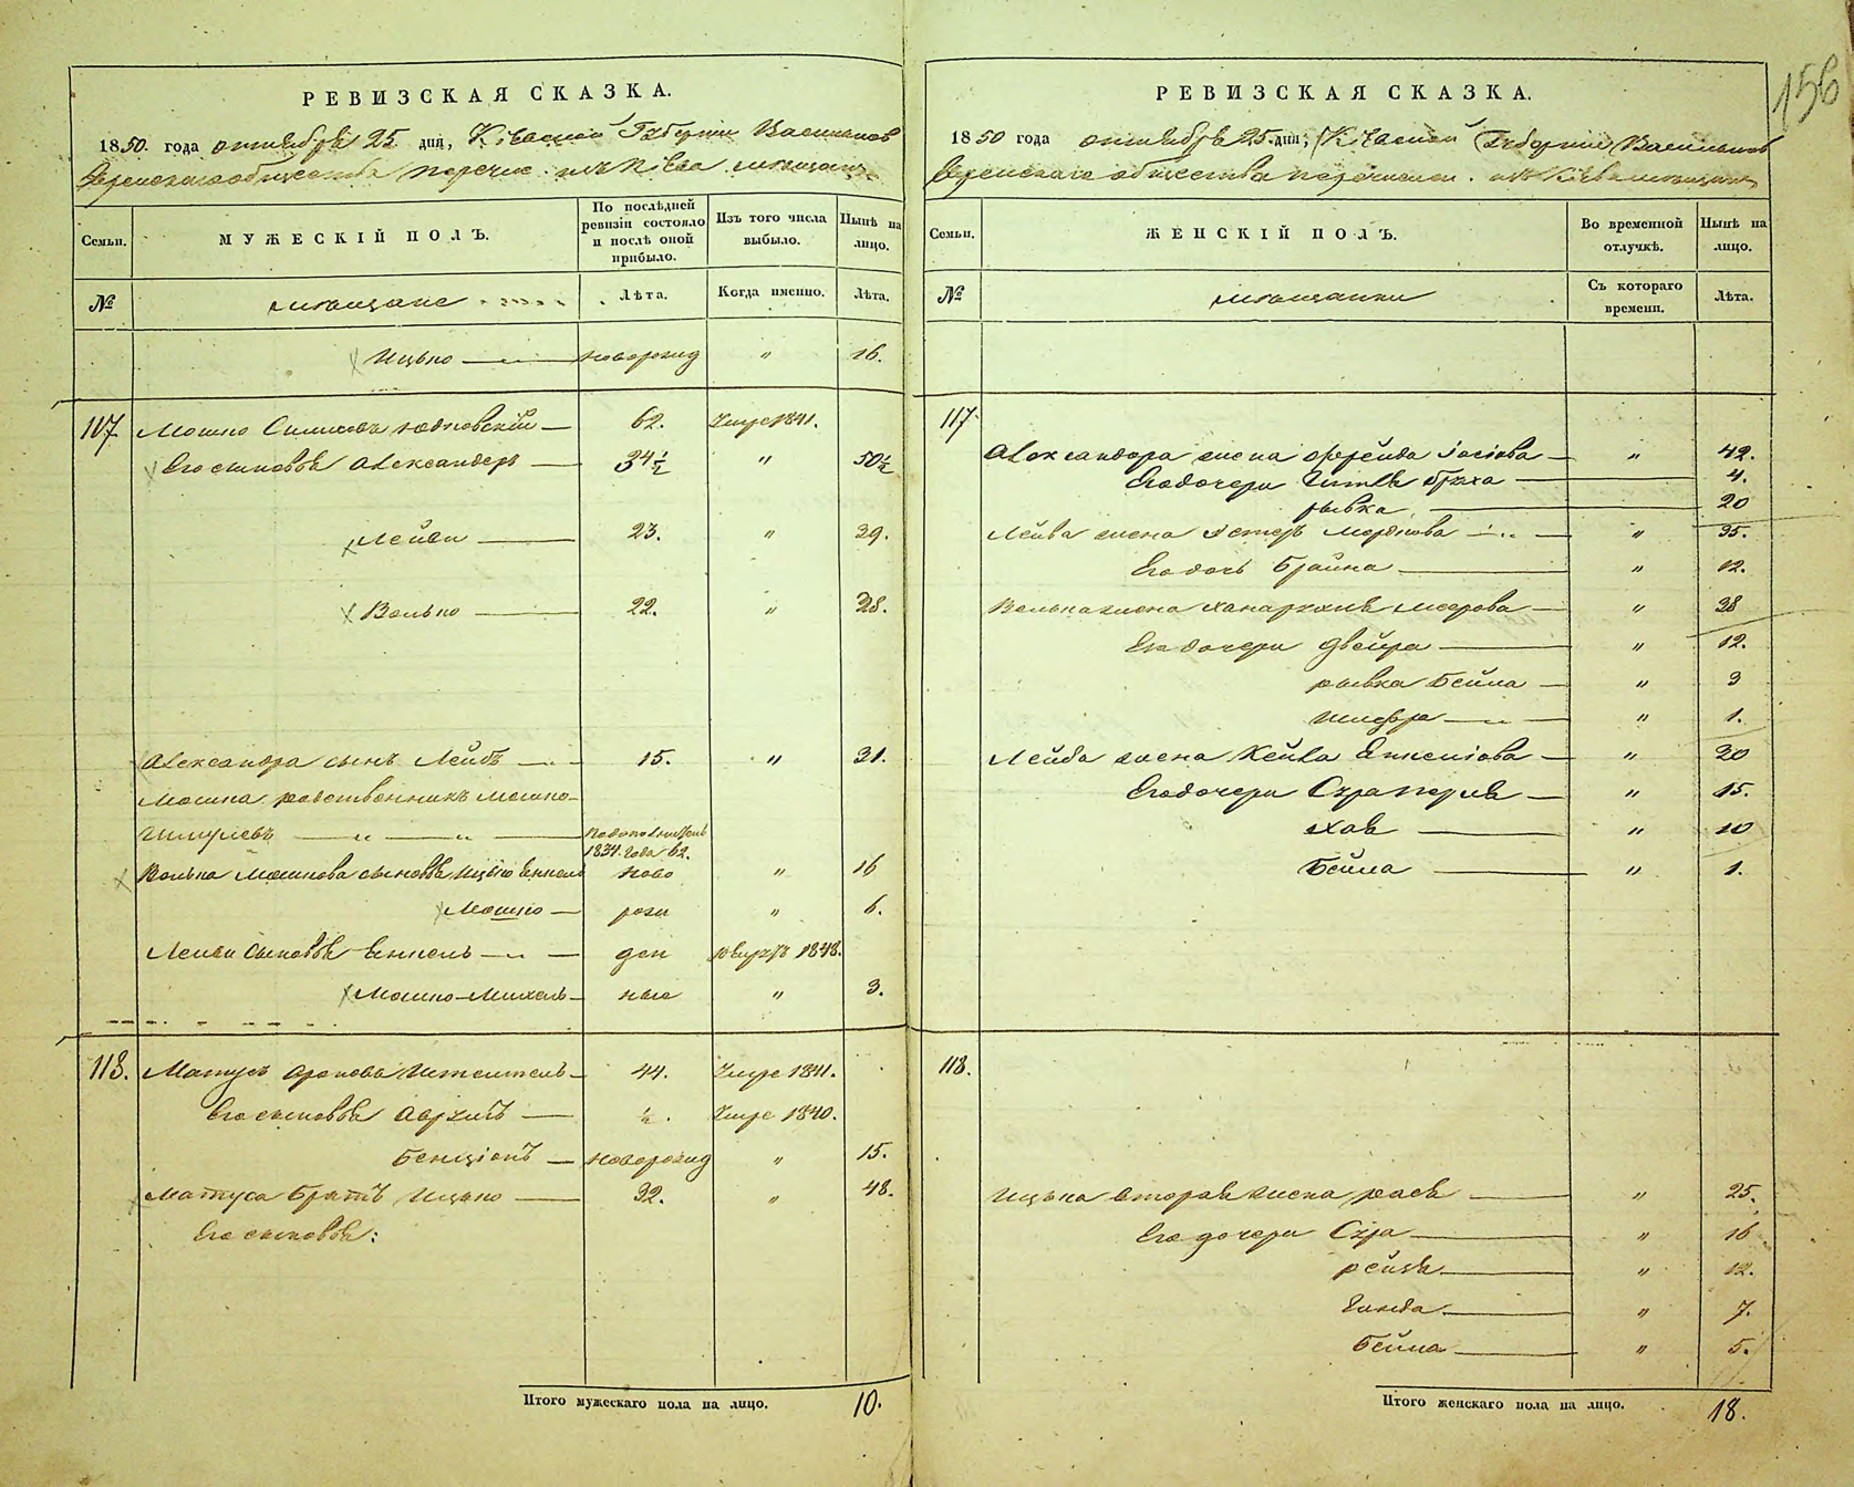 156
РЕВИЗСКАЯ СКАЗКА.
1850. года октября 25 дня, Кіевской Губерніи Васильков
общества перечис. изъ Кіева мещанъ
Семьи.
МУЖЕСКІЙ ПОЛЪ.
По послѣдней ревизіи состояло и послѣ оной прибыло.
Изъ того числа выбыло.
Нынѣ на лицо.
№
мещане
Лѣта.
Когда именно.
Лѣта.
Ицько новорожд " 16.
117 Мошко Юдковскій 62. Умре 1841.
Его сыновья Александеръ 34 1/2 " 50 1/2
Лейви 23. " 39.
Волько 22. " 38.
Александра сынъ Лейбъ 15. " 31.
Мошка родственникъ Мошко
Шмулевъ по дополнитель
1834. года 62.
Волька Мошкова сыновья Ицько Еннохъ ново " 16
Мошко рож " 6.
Лейви сыновья Еннохъ ден 1848.
Мошко-Михель ные " 3.
118. Матусъ Ароновъ 44. Умре 1841.
Его сыновья Умре 1840.
Бенціонъ новорожд " 15.
Матуса братъ Ицько 32. " 48.
Его сыновья:
Итого мужескаго пола на лицо. 10.
РЕВИЗСКАЯ СКАЗКА.
1850 года октября 25. дня, Кіевской Губерніи Васильков
общества перечислен. изъ Кіева мещанъ
Семьи.
ЖЕНСКІЙ ПОЛЪ.
Во временной отлучкѣ.
Нынѣ на лицо.
№
мещанки
Съ котораго времени.
Лѣта.
117.
Александора жена Фрейда Іосіова " 42.
Его дочери Гитля Бруха 4.
рывка 20
Лейва жена Эстеръ Мордкова " 35.
Его дочь Брайна " 12.
Волька жена Меерова " 38
Его дочери Двейра " 12.
рывка Бейла " 3
Шифра " 1.
Лейба жена Кейла " 30
Его дочери Сура Перля " 15.
Хая " 10
Бейла " 1.
118.
Ицька вторая жена рася " 25.
Его дочери Сура " 16
рейзя " 12.
" 7.
Бейла " 5.
Итого женскаго пола на лицо. 18.